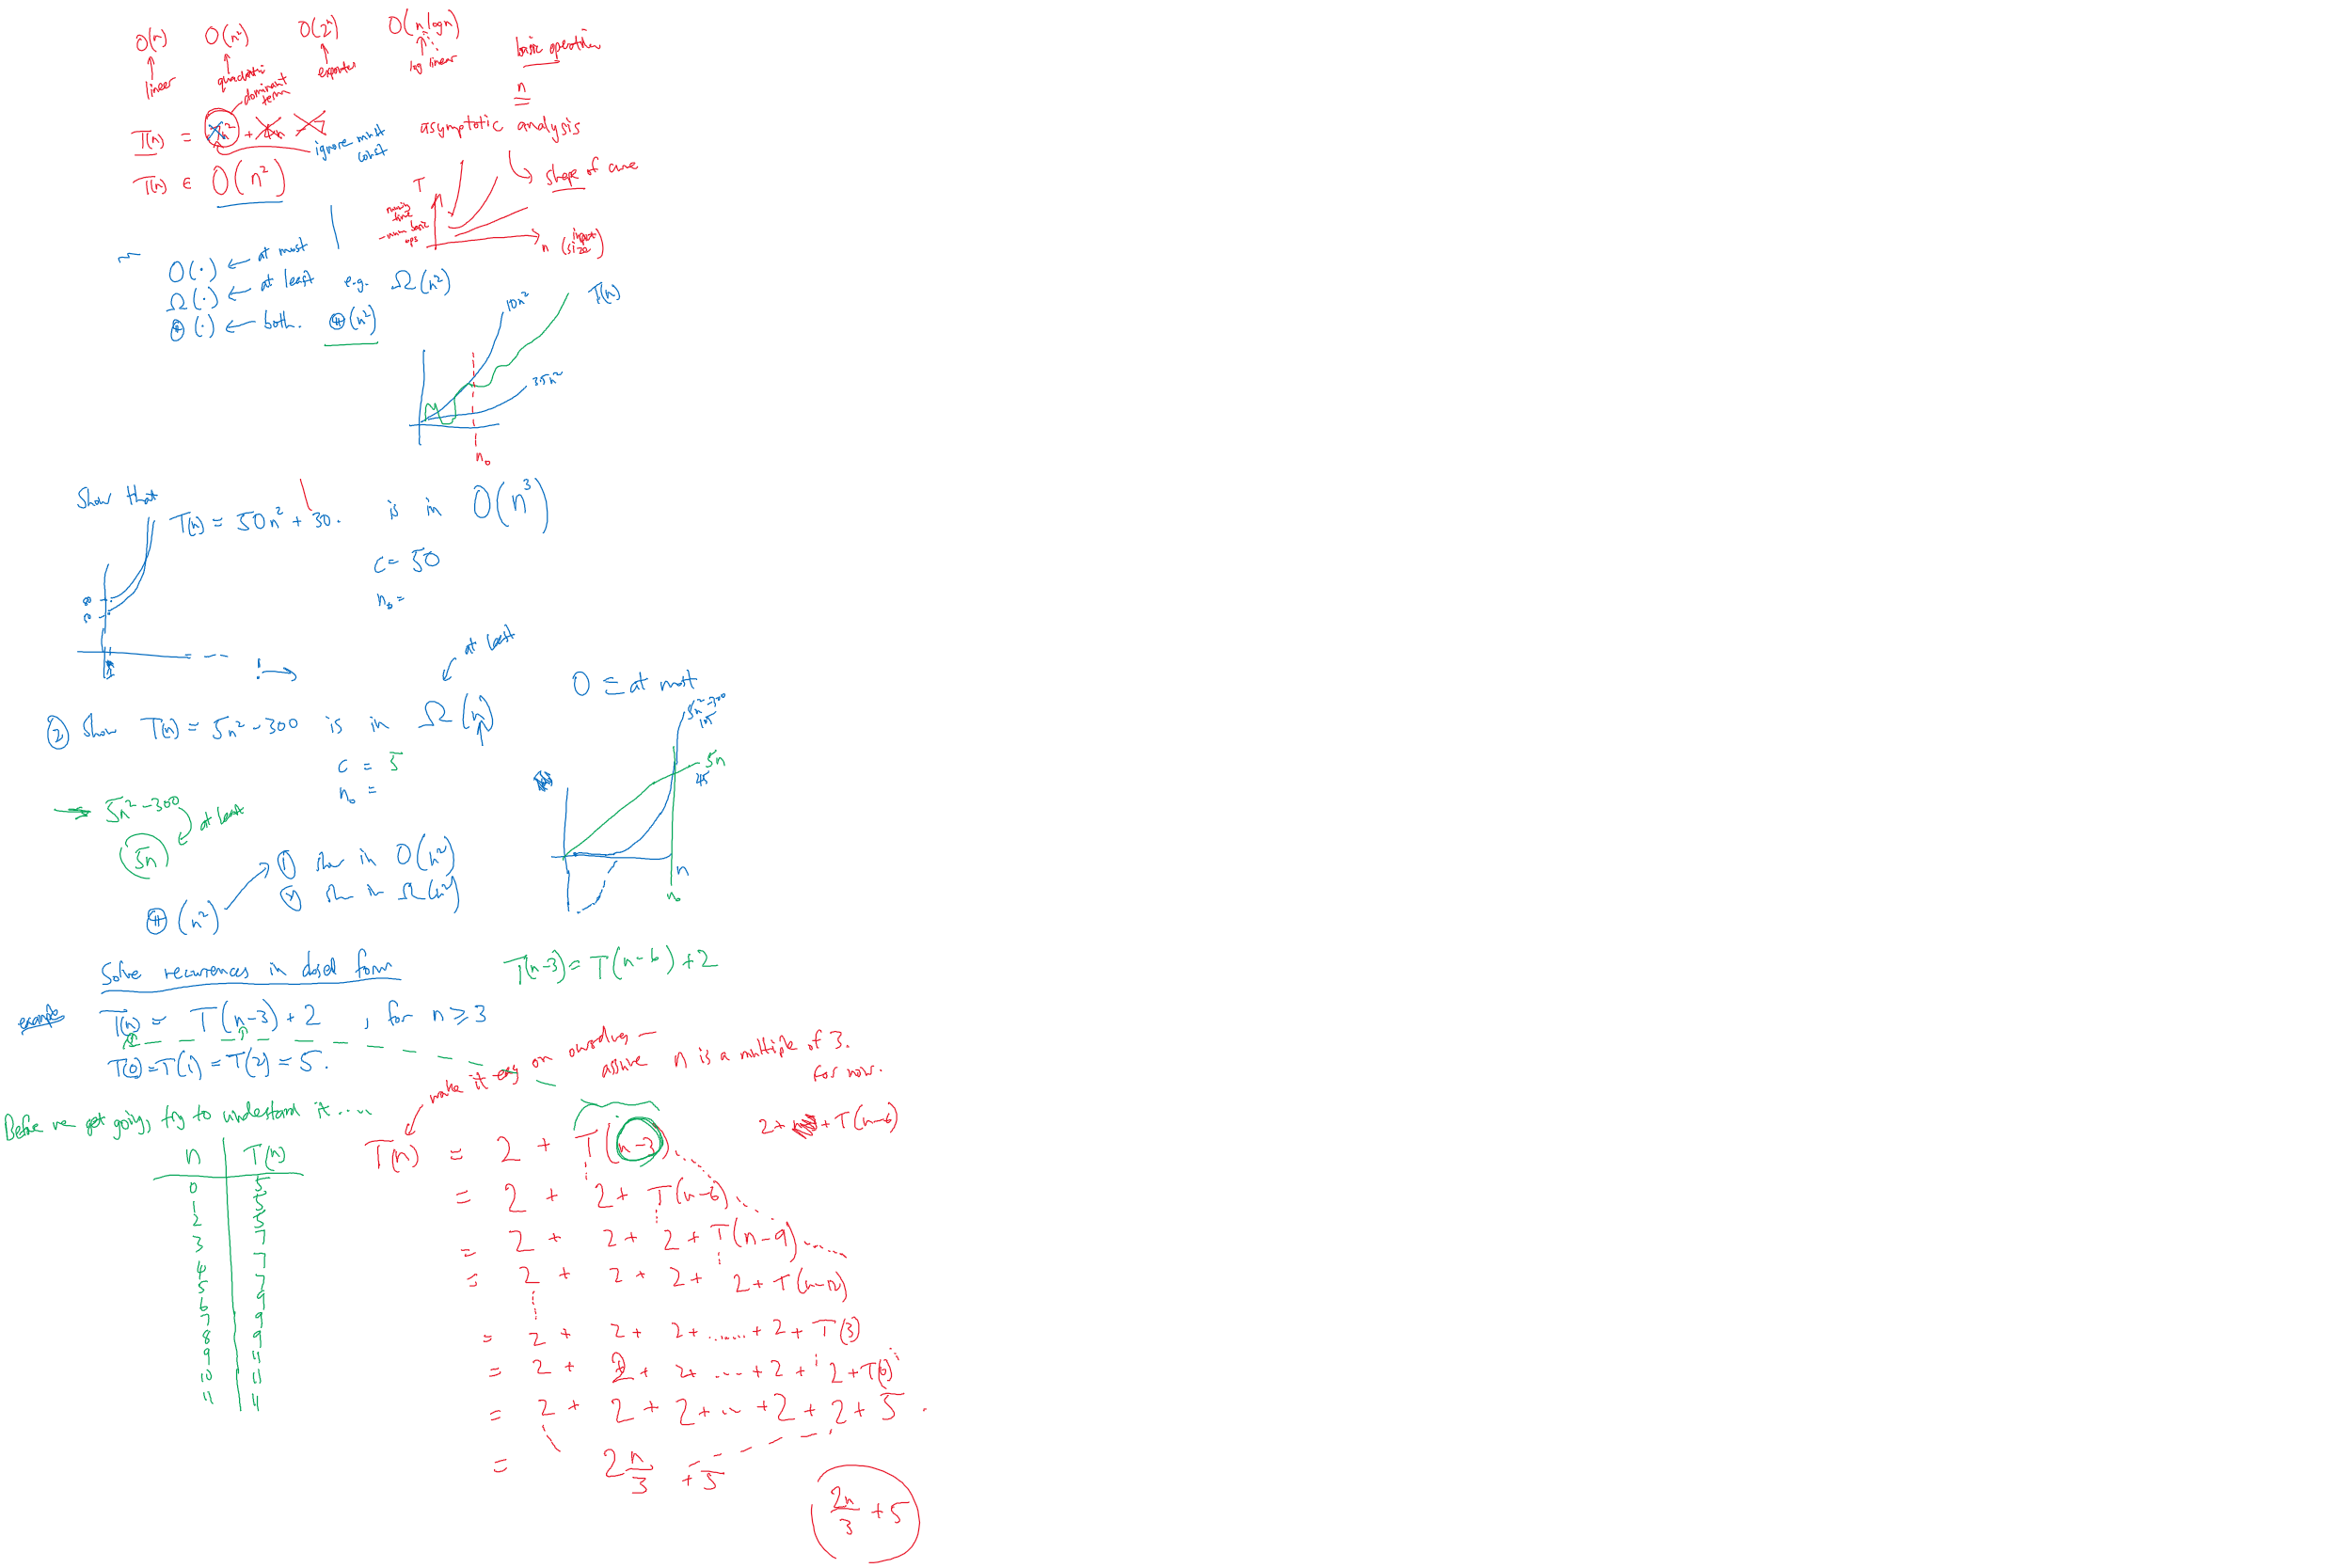 O(n) O(n²) O(2ⁿ) O(n log n)
linear quadratic log linear
basic operation
n
dominant term
T(n) = 7n² + 4n
ignore mult const
T(n) ∈ O(n²)
asymptotic analysis
shape of curve
T
running time
- num basic ops
n (input size)
~ O(·) ← at most
Ω(·) ← at least e.g. Ω(n²)
Θ(·) ← both. Θ(n²)
10n²
T(n)
3.5n²
n₀
Show that
T(n) = 50n² + 30. is in O(n³)
c = 50
n₀ =
at least
② Show T(n) = 5n² - 300 is in Ω(n)
c = 5
n₀ =
O ≤ at most
5n²-300
105
5n
45
n
n₀
→ 5n² - 300
at least
5n
① show in O(n²)
② show in Ω(n²)
Θ(n²)
Solve recurrences in closed form
T(n-3) = T(n-6) + 2
example T(n) = T(n-3) + 2 , for n ≥ 3
T(0) = T(1) = T(2) = 5.
make it easy on ourselves —
assume n is a multiple of 3.
for now.
Before we get going, try to understand it.....
n T(n)
0 5
1 5
2 5
3 7
4 7
5 7
6 9
7 9
8 9
9 11
10 11
11 11
2 + T(n-6)
T(n) = 2 + T(n-3)
= 2 + 2 + T(n-6)
= 2 + 2 + 2 + T(n-9)
= 2 + 2 + 2 + 2 + T(n-12)
= 2 + 2 + 2 + ...... + 2 + T(3)
= 2 + 2 + 2 + ... + 2 + 2 + T(0)
= 2 + 2 + 2 + ... + 2 + 2 + 5.
= 2 n/3 + 5
2n/3 + 5